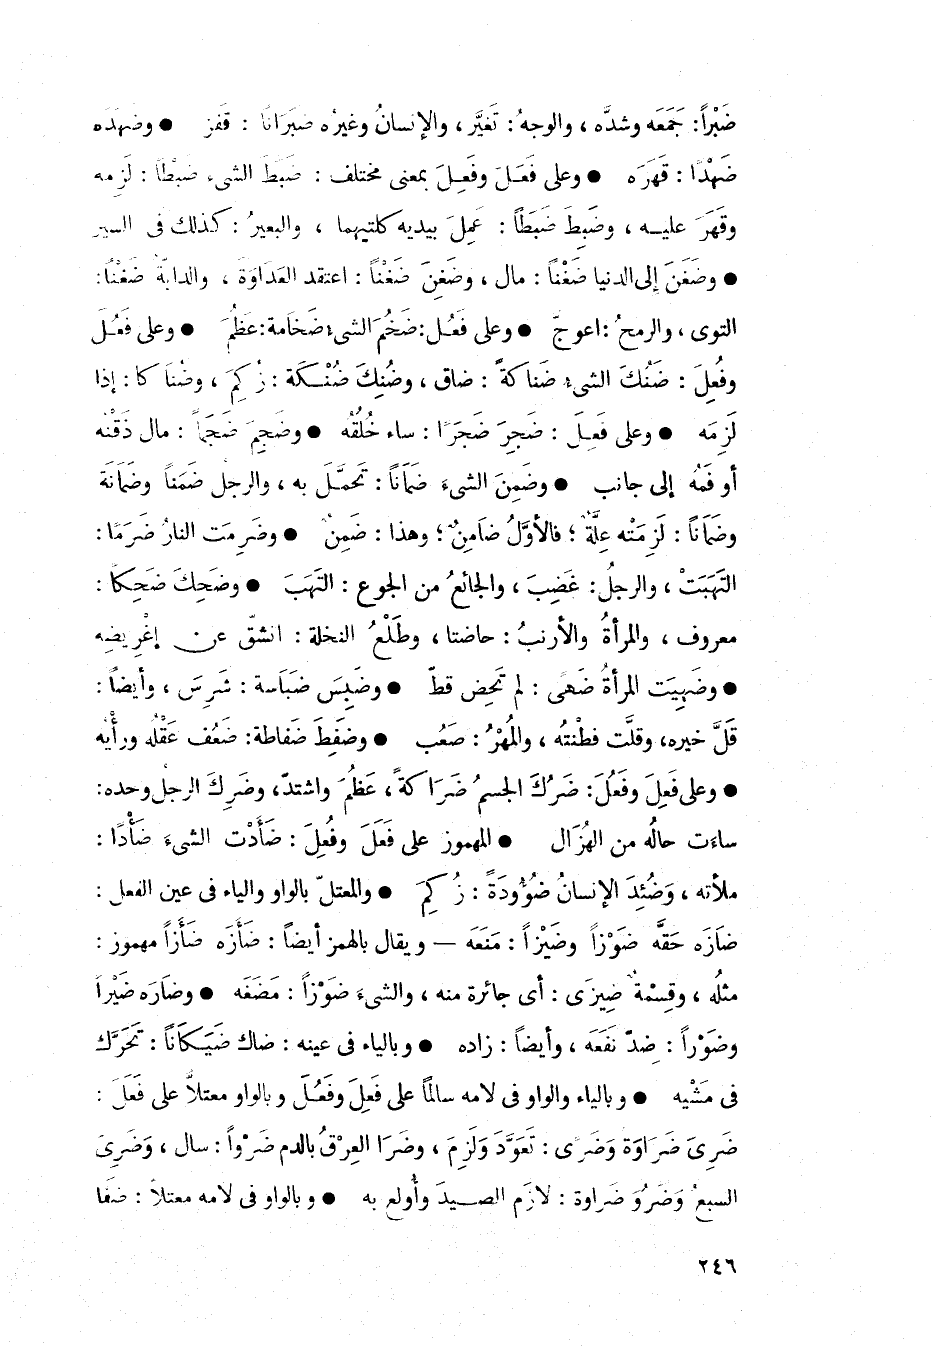 ضَبْراً: جَمَعَه وشدَّه ، والوجهُ : تَغيَّر ، والإنسانُ وغيرُه ضَبَرَاناً : قَفز ● وضَهَدَه
ضَهْدًا : قَهَرَه ● وعلى فَعَـلَ وفَعِـلَ بمعنى مختلف : ضَبَطَ الشىء ضَبْطًا : لَزِمه
وقَهَرَ عليـه ، وضَبِطَ ضَبَطاً : عَمِلَ بيديه كلتيهما ، والبعيرُ : كذلك فى السير
● وضَغَنَ إلى الدنيا ضَغْناً : مال ، وضَغِنَ ضَغْناً : اعتقد العَدَاوَة ، والدابّة ضَغْنًا :
التوى ، والرمحُ : اعوجّ ● وعلى فَعُـل : ضَخُمَ الشىء ضَخامة : عَظُمَ ● وعلى فَعُـلَ
وفُعِلَ : ضَنُكَ الشىء ضَناكةً : ضاق ، وضُنِكَ ضُنْـكَة : زُكِمَ ، وضُناكا : إذا
لَزِمَه ● وعلى فَعِـلَ : ضَجِرَ ضَجَرًا : ساء خُلُقُه ● وضَجِمَ ضَجَماً : مال ذَقْنه
أو فَمُه إلى جانب ● وضَمِنَ الشىءَ ضَمَاناً : تَحمَّـلَ به ، والرجل ضَمَناً وضَمَانَة
وضَمَاناً : لَزِمَتْه عِلَّة ؛ فالأوَّلُ ضَامِنٌ ؛ وهذا : ضَمِنٌ ● وضَرِمَت النارُ ضَرَمًا :
التَهَبَتْ ، والرجلُ : غَضِبَ ، والجائعُ من الجوع : التَهَبَ ● وضَحِكَ ضَحِكاً :
معروف ، والمرأةُ والأرنبُ : حاضتا ، وطَلْعُ النخلة : انشقّ عن إغْرِيضِه
● وضَهِيَت المرأةُ ضَهًى : لم تَحِض قطّ ● وضَبِسَ ضَبَاسة : شَرِسَ ، وأيضاً :
قَلَّ خيره، وقلَّت فطْنتُه ، والمُهْرُ : صَعُب ● وضَفِطَ ضَفاطة : ضَعُف عَقْلُه ورأْيُه
● وعلى فَعِلَ وفَعُلَ : ضَرُكَ الجسمُ ضَرَاكةً ، عَظُمَ واشتدّ، وضَرِكَ الرجل وحده:
ساءت حالُه من الهُزَال ● المهموز على فَعَلَ وفُعِلَ : ضَأَدْت الشىءَ ضَأْدًا :
ملأته ، وَضُئِدَ الإنسانُ ضُؤُودَةً : زُكِمَ ● والمعتلّ بالواو والياء فى عين الفعل :
ضَازَه حَقَّه ضَوْزاً وضَيْزاً : مَنَعَه — ويقال بالهمز أيضاً : ضَأَزَه ضَأَزاً مهموز :
مثلُه ، وقِسْمةٌ ضِيزَى : أى جائرة منه ، والشىءَ ضَوْزاً : مَضَغَه ● وضَارَه ضَيْراً
وضَوْراً : ضِدّ نَفَعَه ، وأيضاً : زاده ● وبالياء فى عينه : ضاك ضَيَـكَاناً : تَحَرَّك
فى مَشْيِه ● وبالياء والواو فى لامه سالماً على فَعِلَ وفَعُـلَ وبالواو معتلاًّ على فَعَلَ :
ضَرِىَ ضَرَاوَة وَضَرًى : تَعوَّدَ وَلَزِمَ ، وضَرَا العِرْقُ بالدم ضَرْواً : سال ، وَضَرِىَ
السبعُ وَضَرُوَ ضَراوة : لازَم الصـيدَ وأُولع به ● وبالواو فى لامه معتلاً : ضَفا
٢٤٦